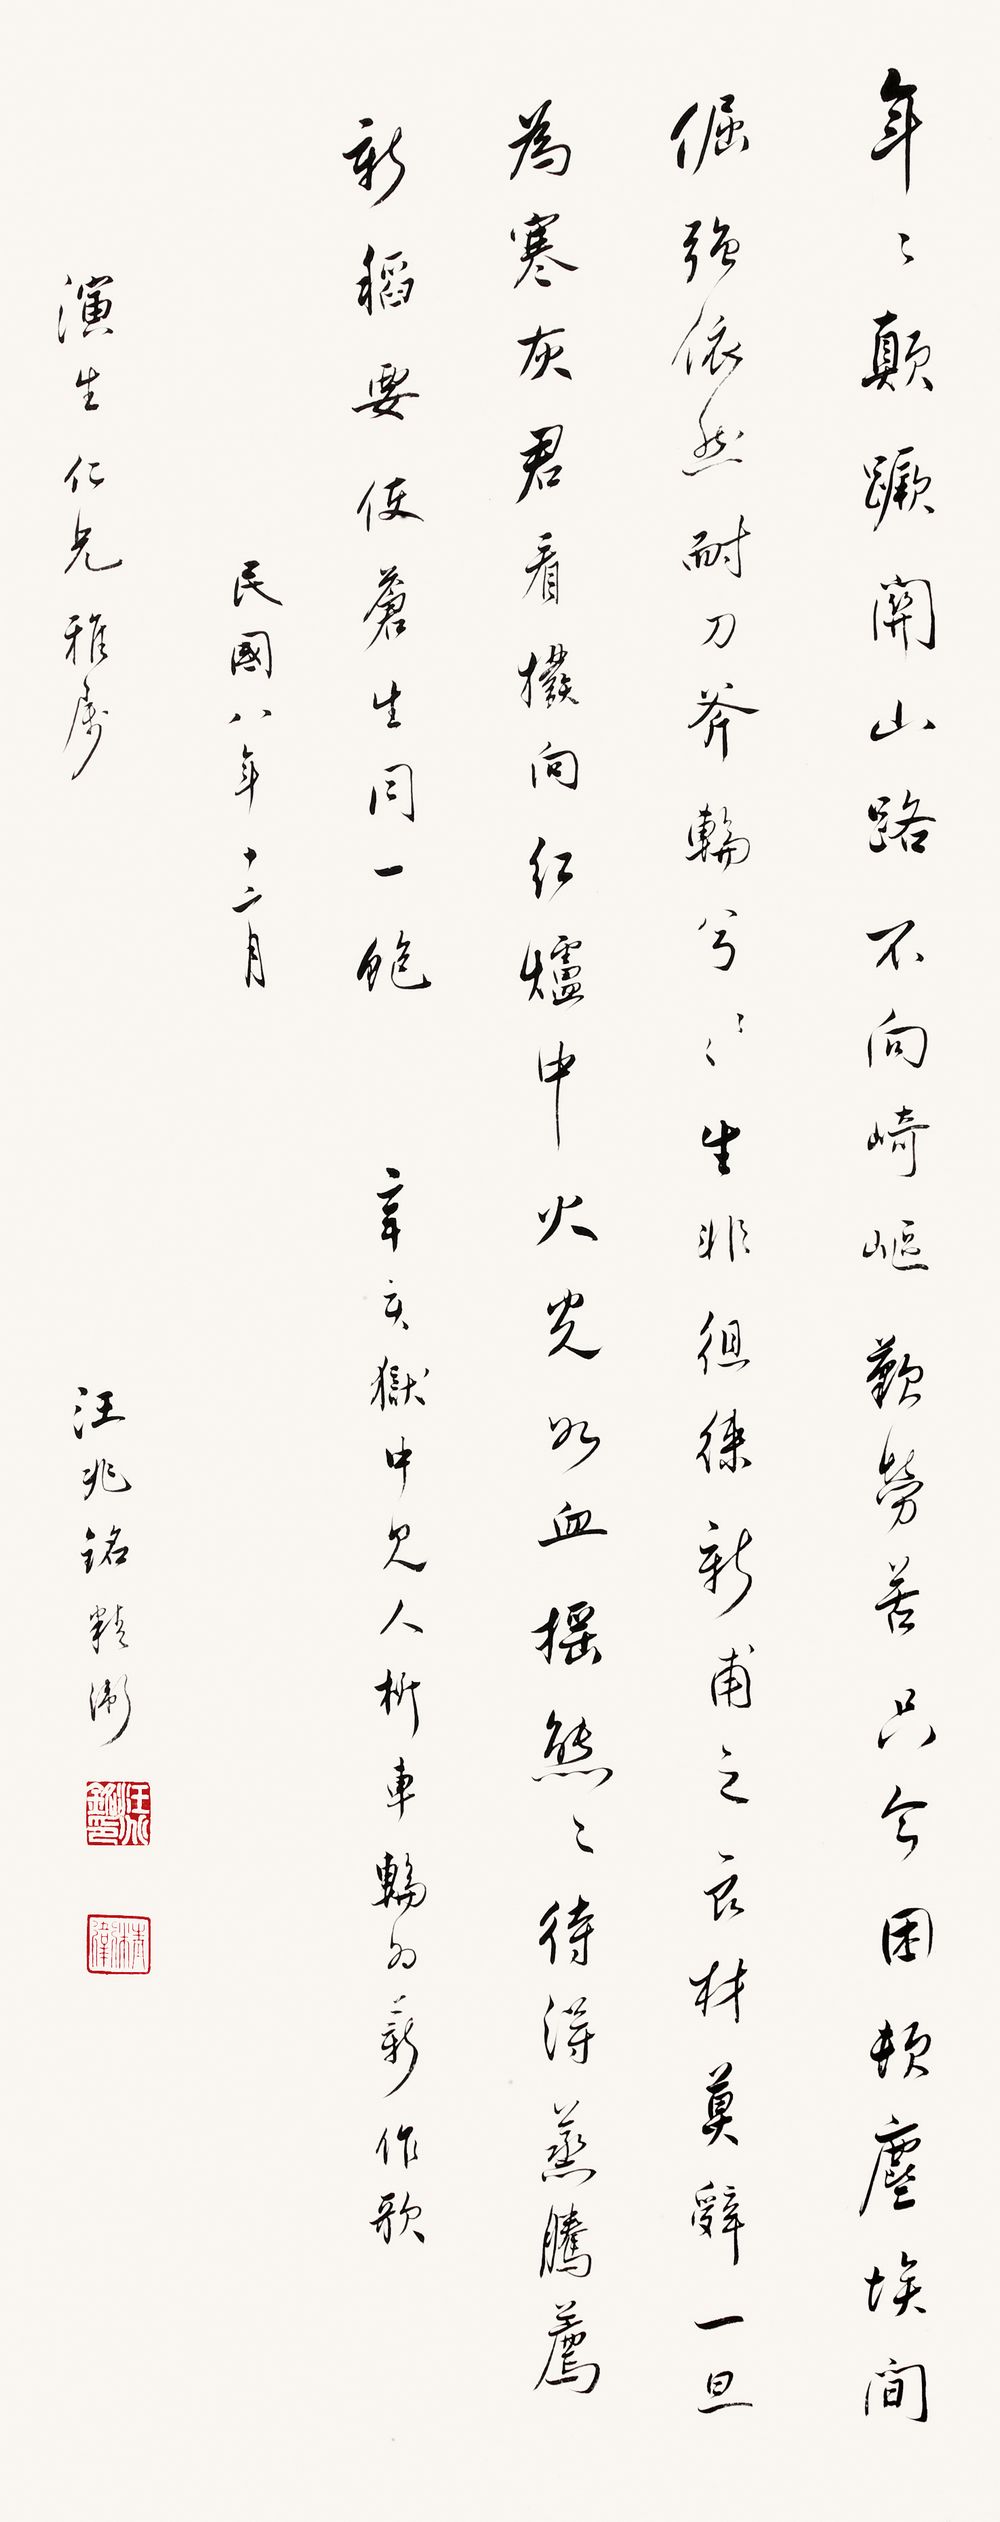 年〻顛蹶關山路不向崎嶇歎勞苦只今困頓塵埃間
倔強依然耐刀斧輪兮〻〻生非徂徠新甫之良材莫辭一旦
為寒灰君看擲向紅爐中火光如血搖熊〻待得蒸騰薦
新稻要使蒼生同一飽
辛亥獄中見人析車輪為薪作歌
民國八年十二月
演生仁兄雅屬
汪兆銘精衛
汪兆銘印
精衛